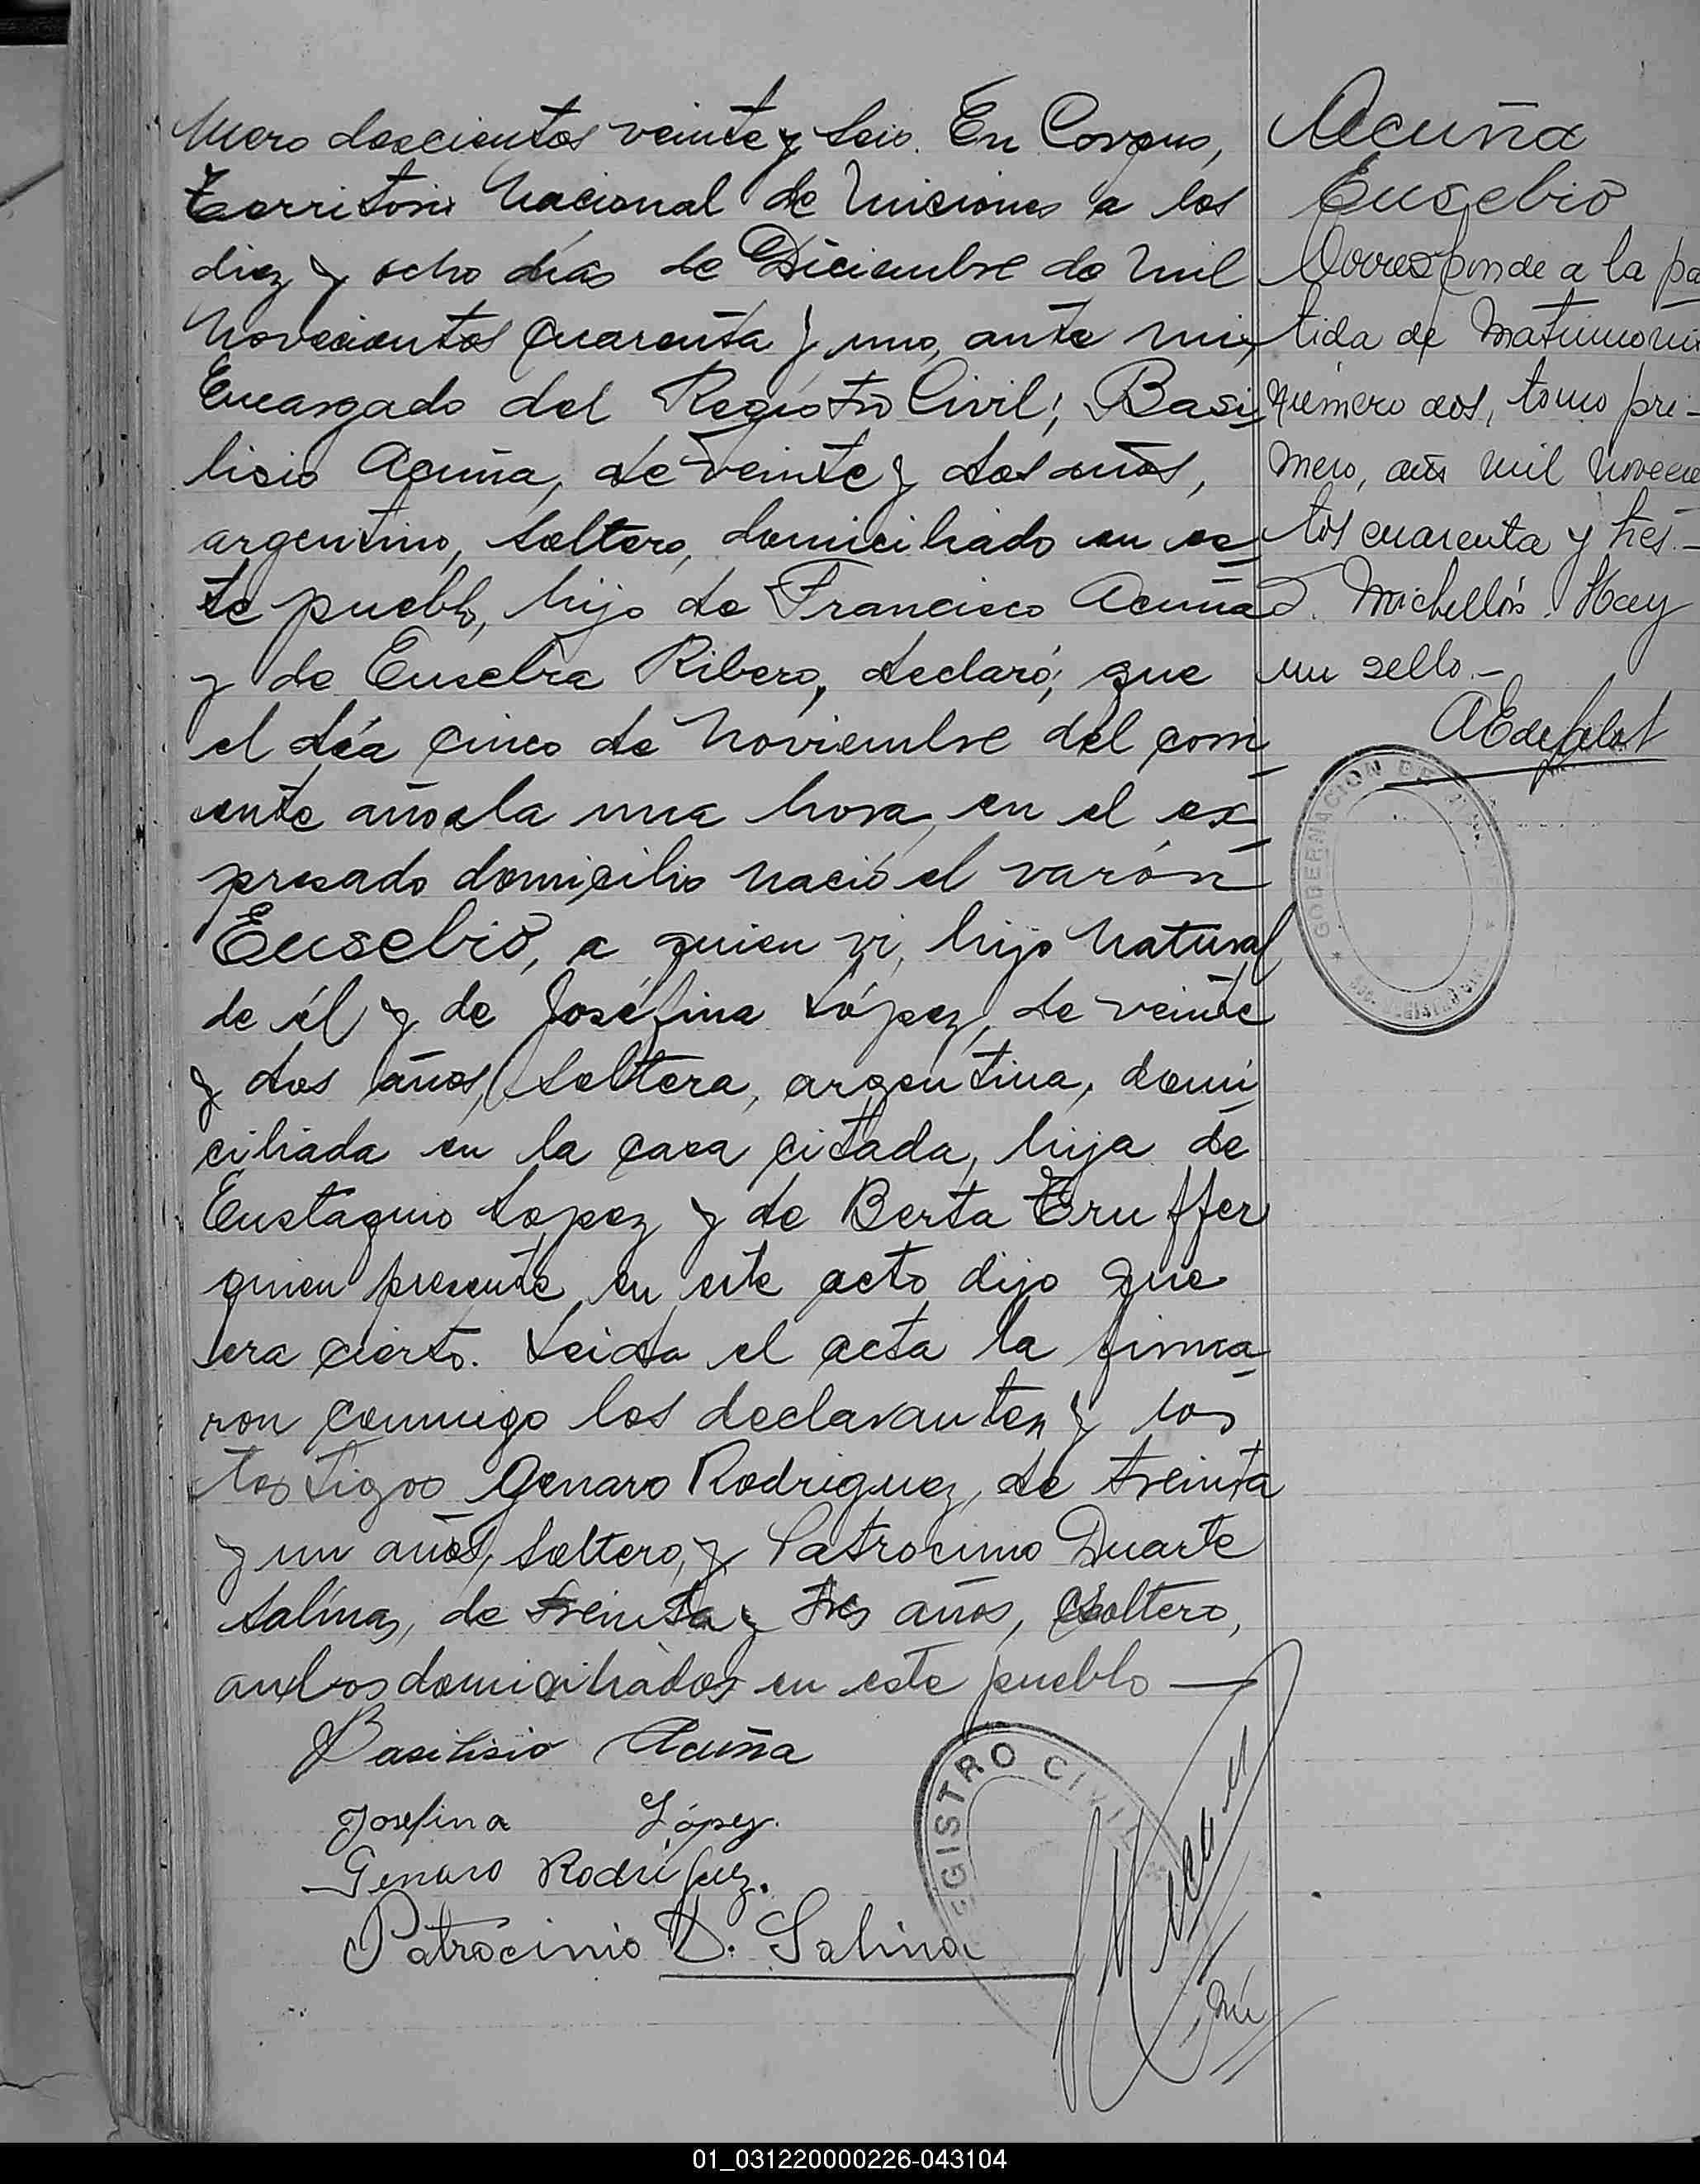 Mero doscientos veinte y seis. En Corpus,
Territorio Nacional de Misiones a los
diez y ocho días de Diciembre de mil
novecientos cuarenta y uno, ante mi,
Encargado del Registro Civil; Basi
lisio Acuña, de veinte y dos años,
argentino, soltero, domiciliado en es
te pueblo, hijo de Francisco Acuña
y de Eusebia Ribero, declaró; que
el día cinco de Noviembre del corri
ente año a la una hora, en el ex
presado domicilio nació el varón
Eusebio, a quien vi, hijo natural
de él y de Joséfina López, de veinte
y dos años, soltera, argentina, domi
ciliada en la casa citada, hija de
Eustaquio Lopez y de Berta Eruffer
quien presente en este acto dijo que
era cierto. Leida el acta la firma
ron conmigo los declarantes y los
testigos Genaro Rodriguez, de treinta
y un años, soltero, y Patrocinio Duarte
Salinas, de treinta y tres años, soltero,
ambos domiciliados en este pueblo —
Basilisio Acuña
Josefina López.
Genaro Rodríguez.
Patrocinio D. Salina
REGISTRO CIVIL
Acuña
Eusebio
Corresponde a la pa
tida de Matrimonio
número dos, tomo pri-
mero, año mil novecie
tos cuarenta y tres.-
Michellón. Hay
un sello.-
GOBERNACION DE
01_031220000226-043104